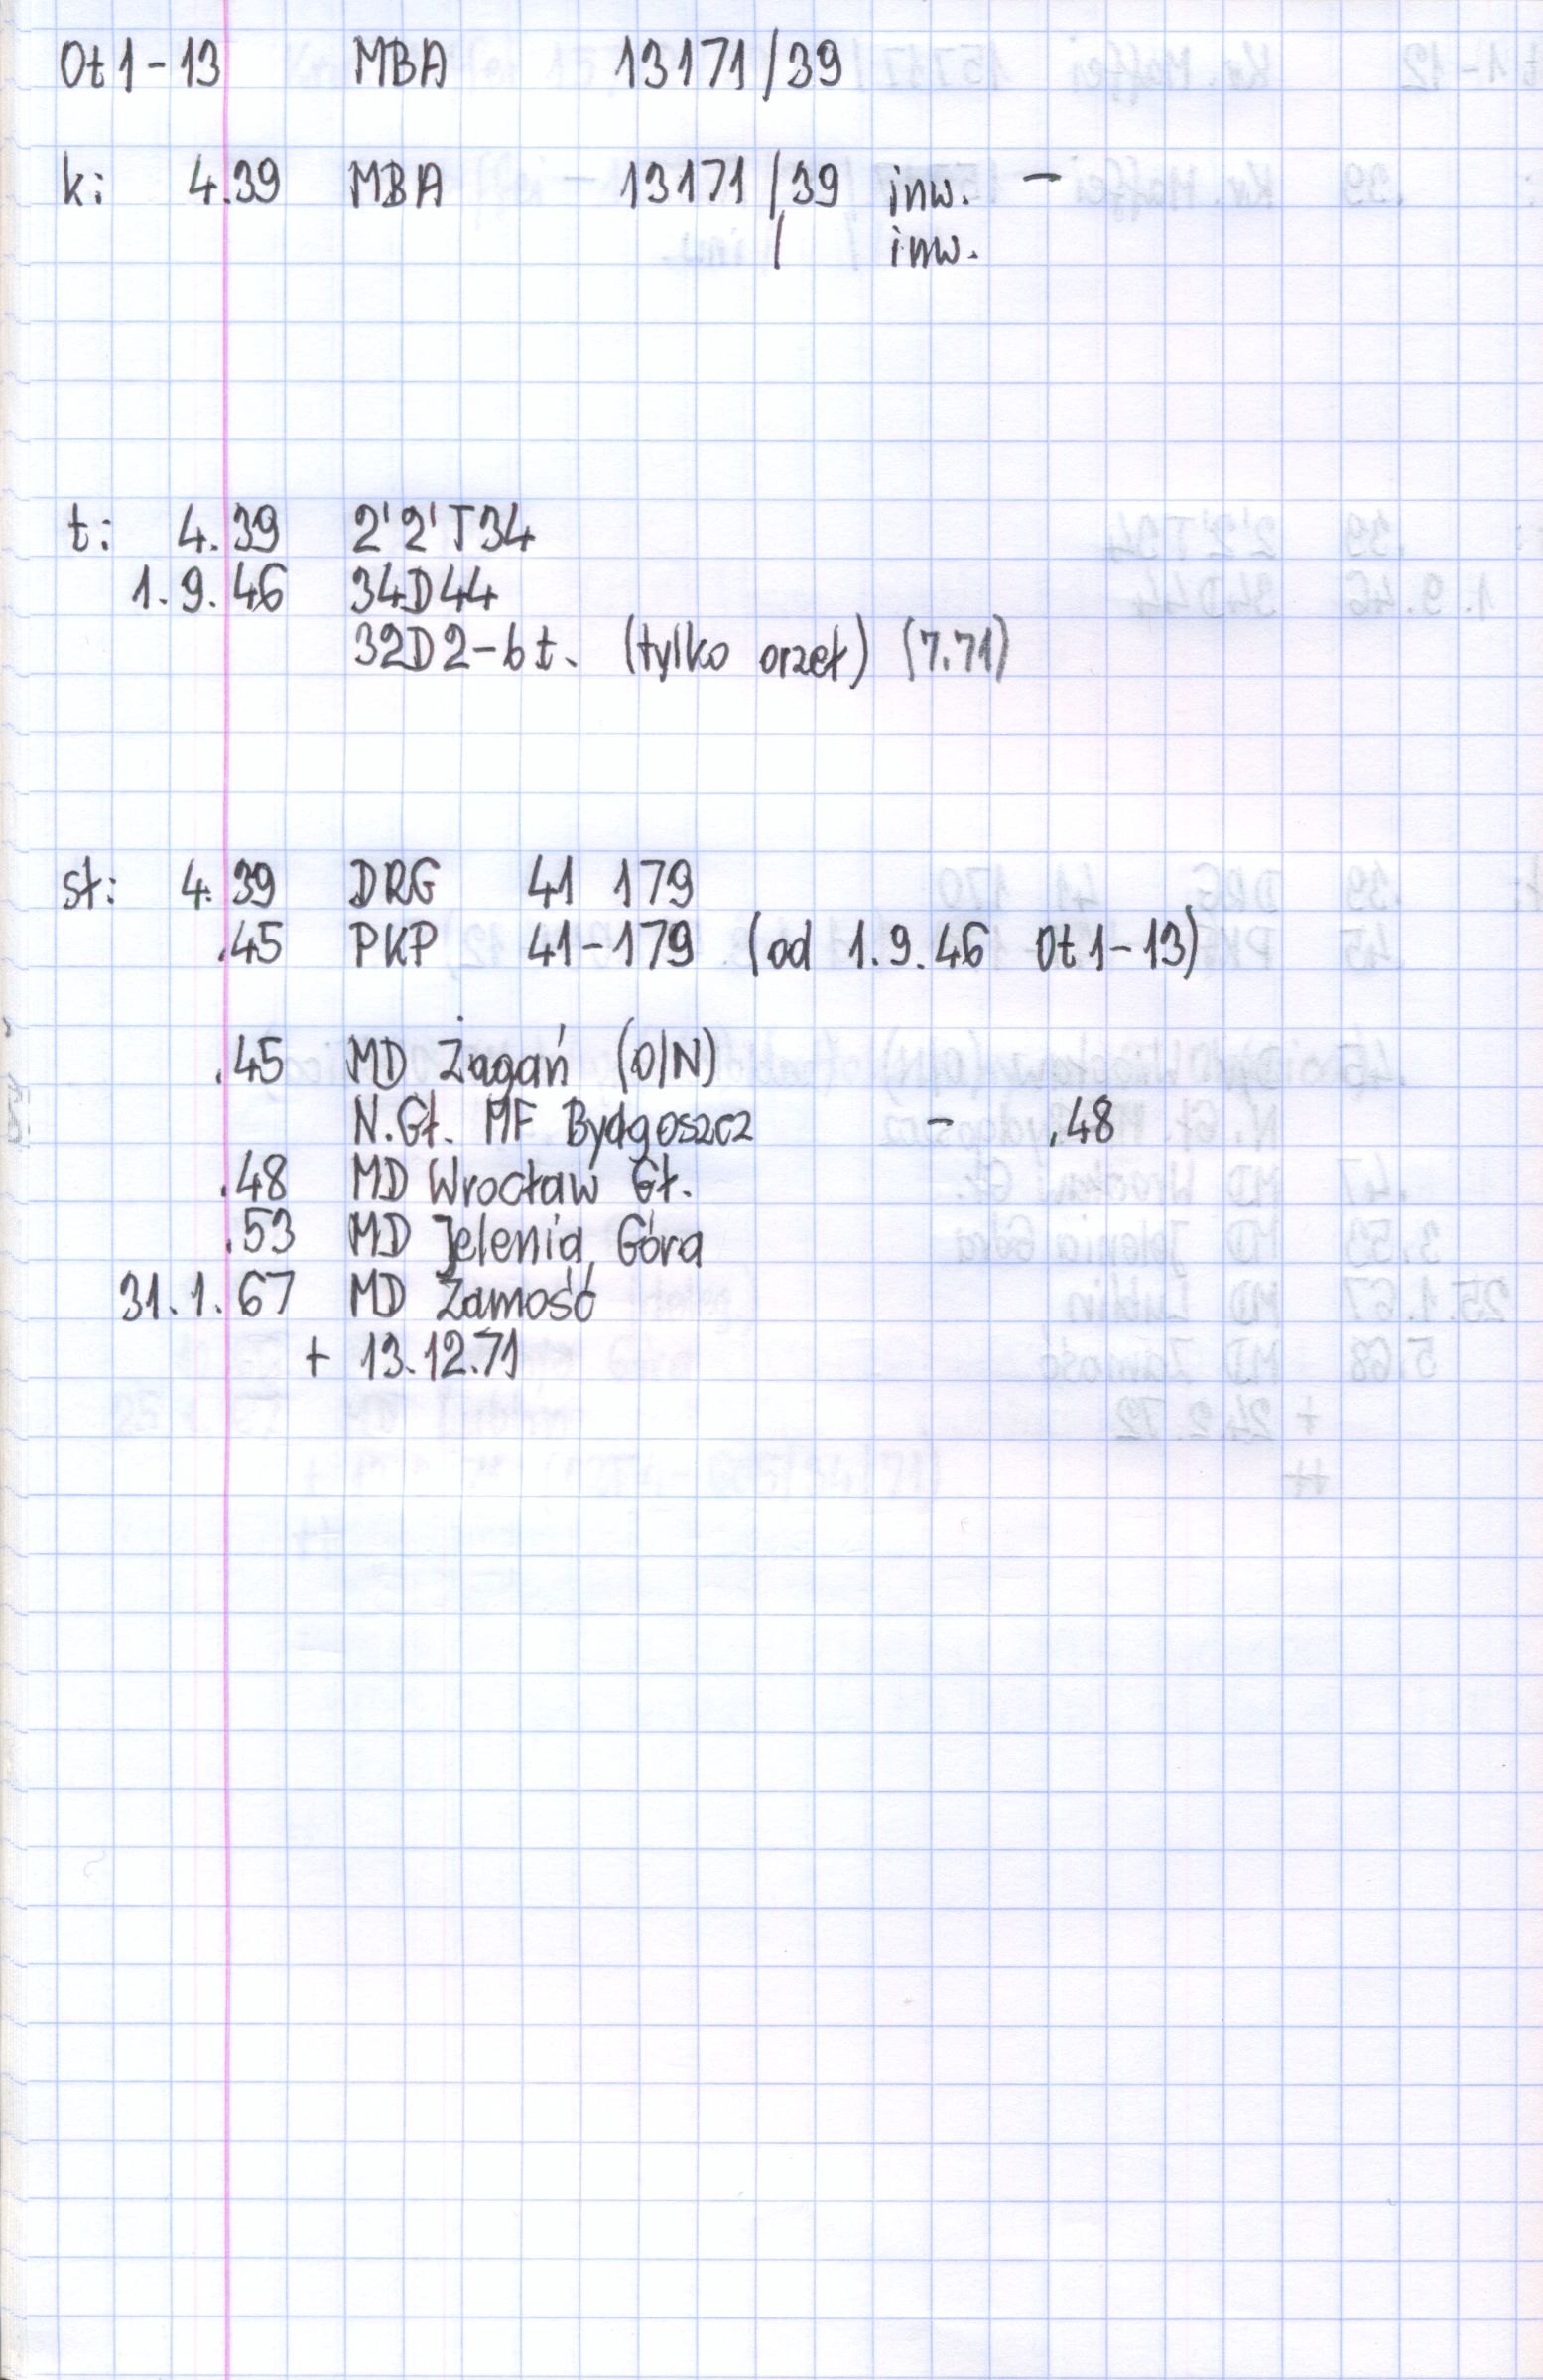 Ot1-13 MBA 13171/39
k: 4.39 MBA 13171/39 inw. -
/ inw.
t: 4.39 2'2'T34
1.9.46 34D44
32D2-6 t. (tylko orzeł) (7.71)
st: 4.39 DRG 41 179
.45 PKP 41-179 (od 1.9.46 Ot1-13)
.45 MD Żagań (O/N)
N.Gł. MF Bydgoszcz - .48
.48 MD Wrocław Gł.
.53 MD Jelenia Góra
31.1.67 MD Zamość
+ 13.12.71